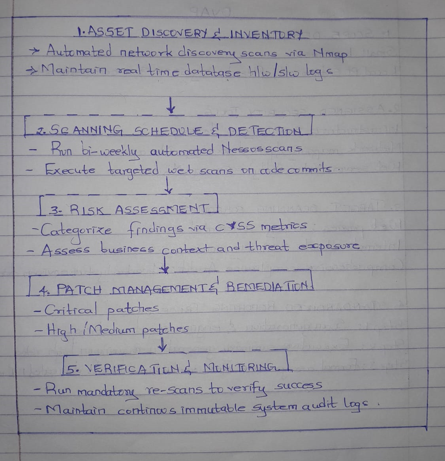 1. ASSET DISCOVERY & INVENTORY
→ Automated network discovery scans via Nmap
→ Maintain real time datatbase h/w/s/w logic
2. SCANNING SCHEDULE & DETECTION
- Run bi-weekly automated Nessos scans
- Execute targeted wet scans on code commits.
3. RISK ASSESSMENT
- Categorize findings via CVSS metrics
- Assess business context and threat exposure
4. PATCH MANAGEMENT & REMEDIATION
- Critical patches
- High/Medium patches
5. VERIFICATION & MINITERING
- Run mandatory re-scans to verify success
- Maintain continous immutable system audit logs.